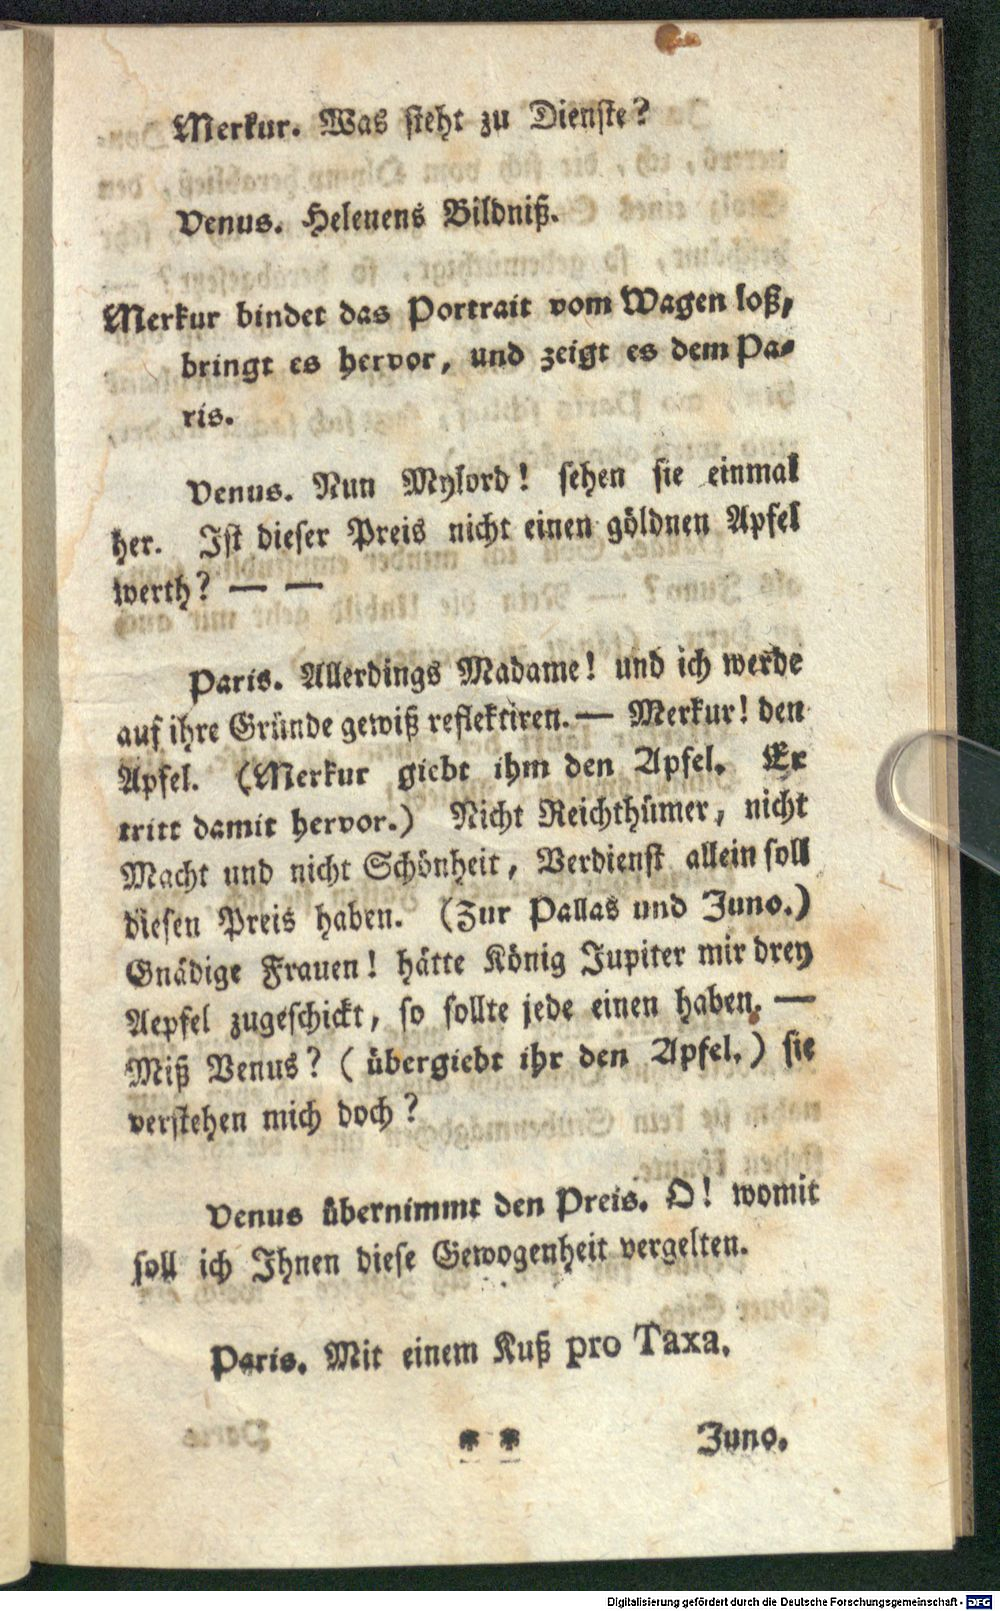 Merkur. Was steht zu Dienste?
Venus. Helenens Bildniß.
Merkur bindet das Portrait vom Wagen loß,
bringt es hervor, und zeigt es dem Pa-
ris.
Venus. Nun Mylord! sehen sie einmal
her. Ist dieser Preis nicht einen göldnen Apfel
werth? — —
Paris. Allerdings Madame! und ich werde
auf ihre Gründe gewiß reflektiren. — Merkur! den
Apfel. (Merkur giebt ihm den Apfel. Er
tritt damit hervor.) Nicht Reichthümer, nicht
Macht und nicht Schönheit, Verdienst allein soll
diesen Preis haben. (Zur Pallas und Juno.)
Gnädige Frauen! hätte König Jupiter mir drey
Aepfel zugeschickt, so sollte jede einen haben. —
Miß Venus? (übergiebt ihr den Apfel.) sie
verstehen mich doch?
Venus übernimmt den Preis. O! womit
soll ich Ihnen diese Gewogenheit vergelten.
Paris. Mit einem Kuß pro Taxa.
* * Juno.
Digitalisierung gefördert durch die Deutsche Forschungsgemeinschaft - DFG